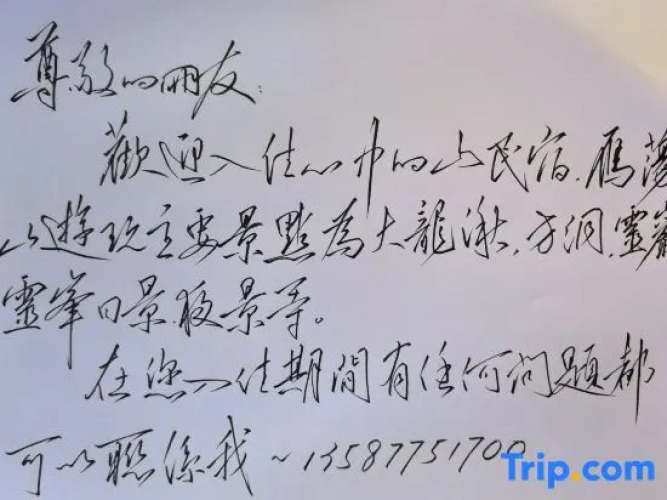 尊敬的网友:
歡迎入住心中的山民宿.雁蕩
山遊玩主要景點為大龍湫.方洞.靈巖
靈峯日景夜景等。
在您入住期間有任何问題都
可以聯係我~13587751700
Trip.com